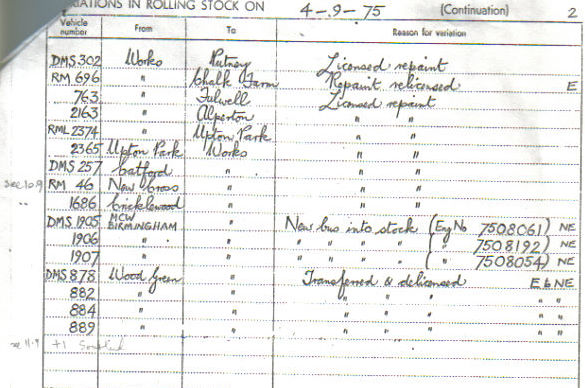 IATIONS IN ROLLING STOCK ON 4-9-75 (Continuation) 2
Vehicle number From To Reason for variation
DMS 302 Works Putney Licensed repaint
RM 696 " Chalk Farm Repaint relicensed E
763 " Fulwell Licensed repaint
2163 " Alperton " "
RML 2374 " Upton Park " "
2365 Upton Park Works " "
DMS 257 Catford " " "
see 10.9 RM 46 New Cross " " "
" 1686 Cricklewood " " "
DMS 1905 MCW BIRMINGHAM " New bus into stock (Eng No 7508061) NE
1906 " " " " " " " (" 7508192) NE
1907 " " " " " " " (" 7508054) NE
DMS 878 Wood Green " Transferred & delicensed E b NE
882 " " " " " " "
884 " " " " " " "
889 " " " " " " "
see 11.9 +1